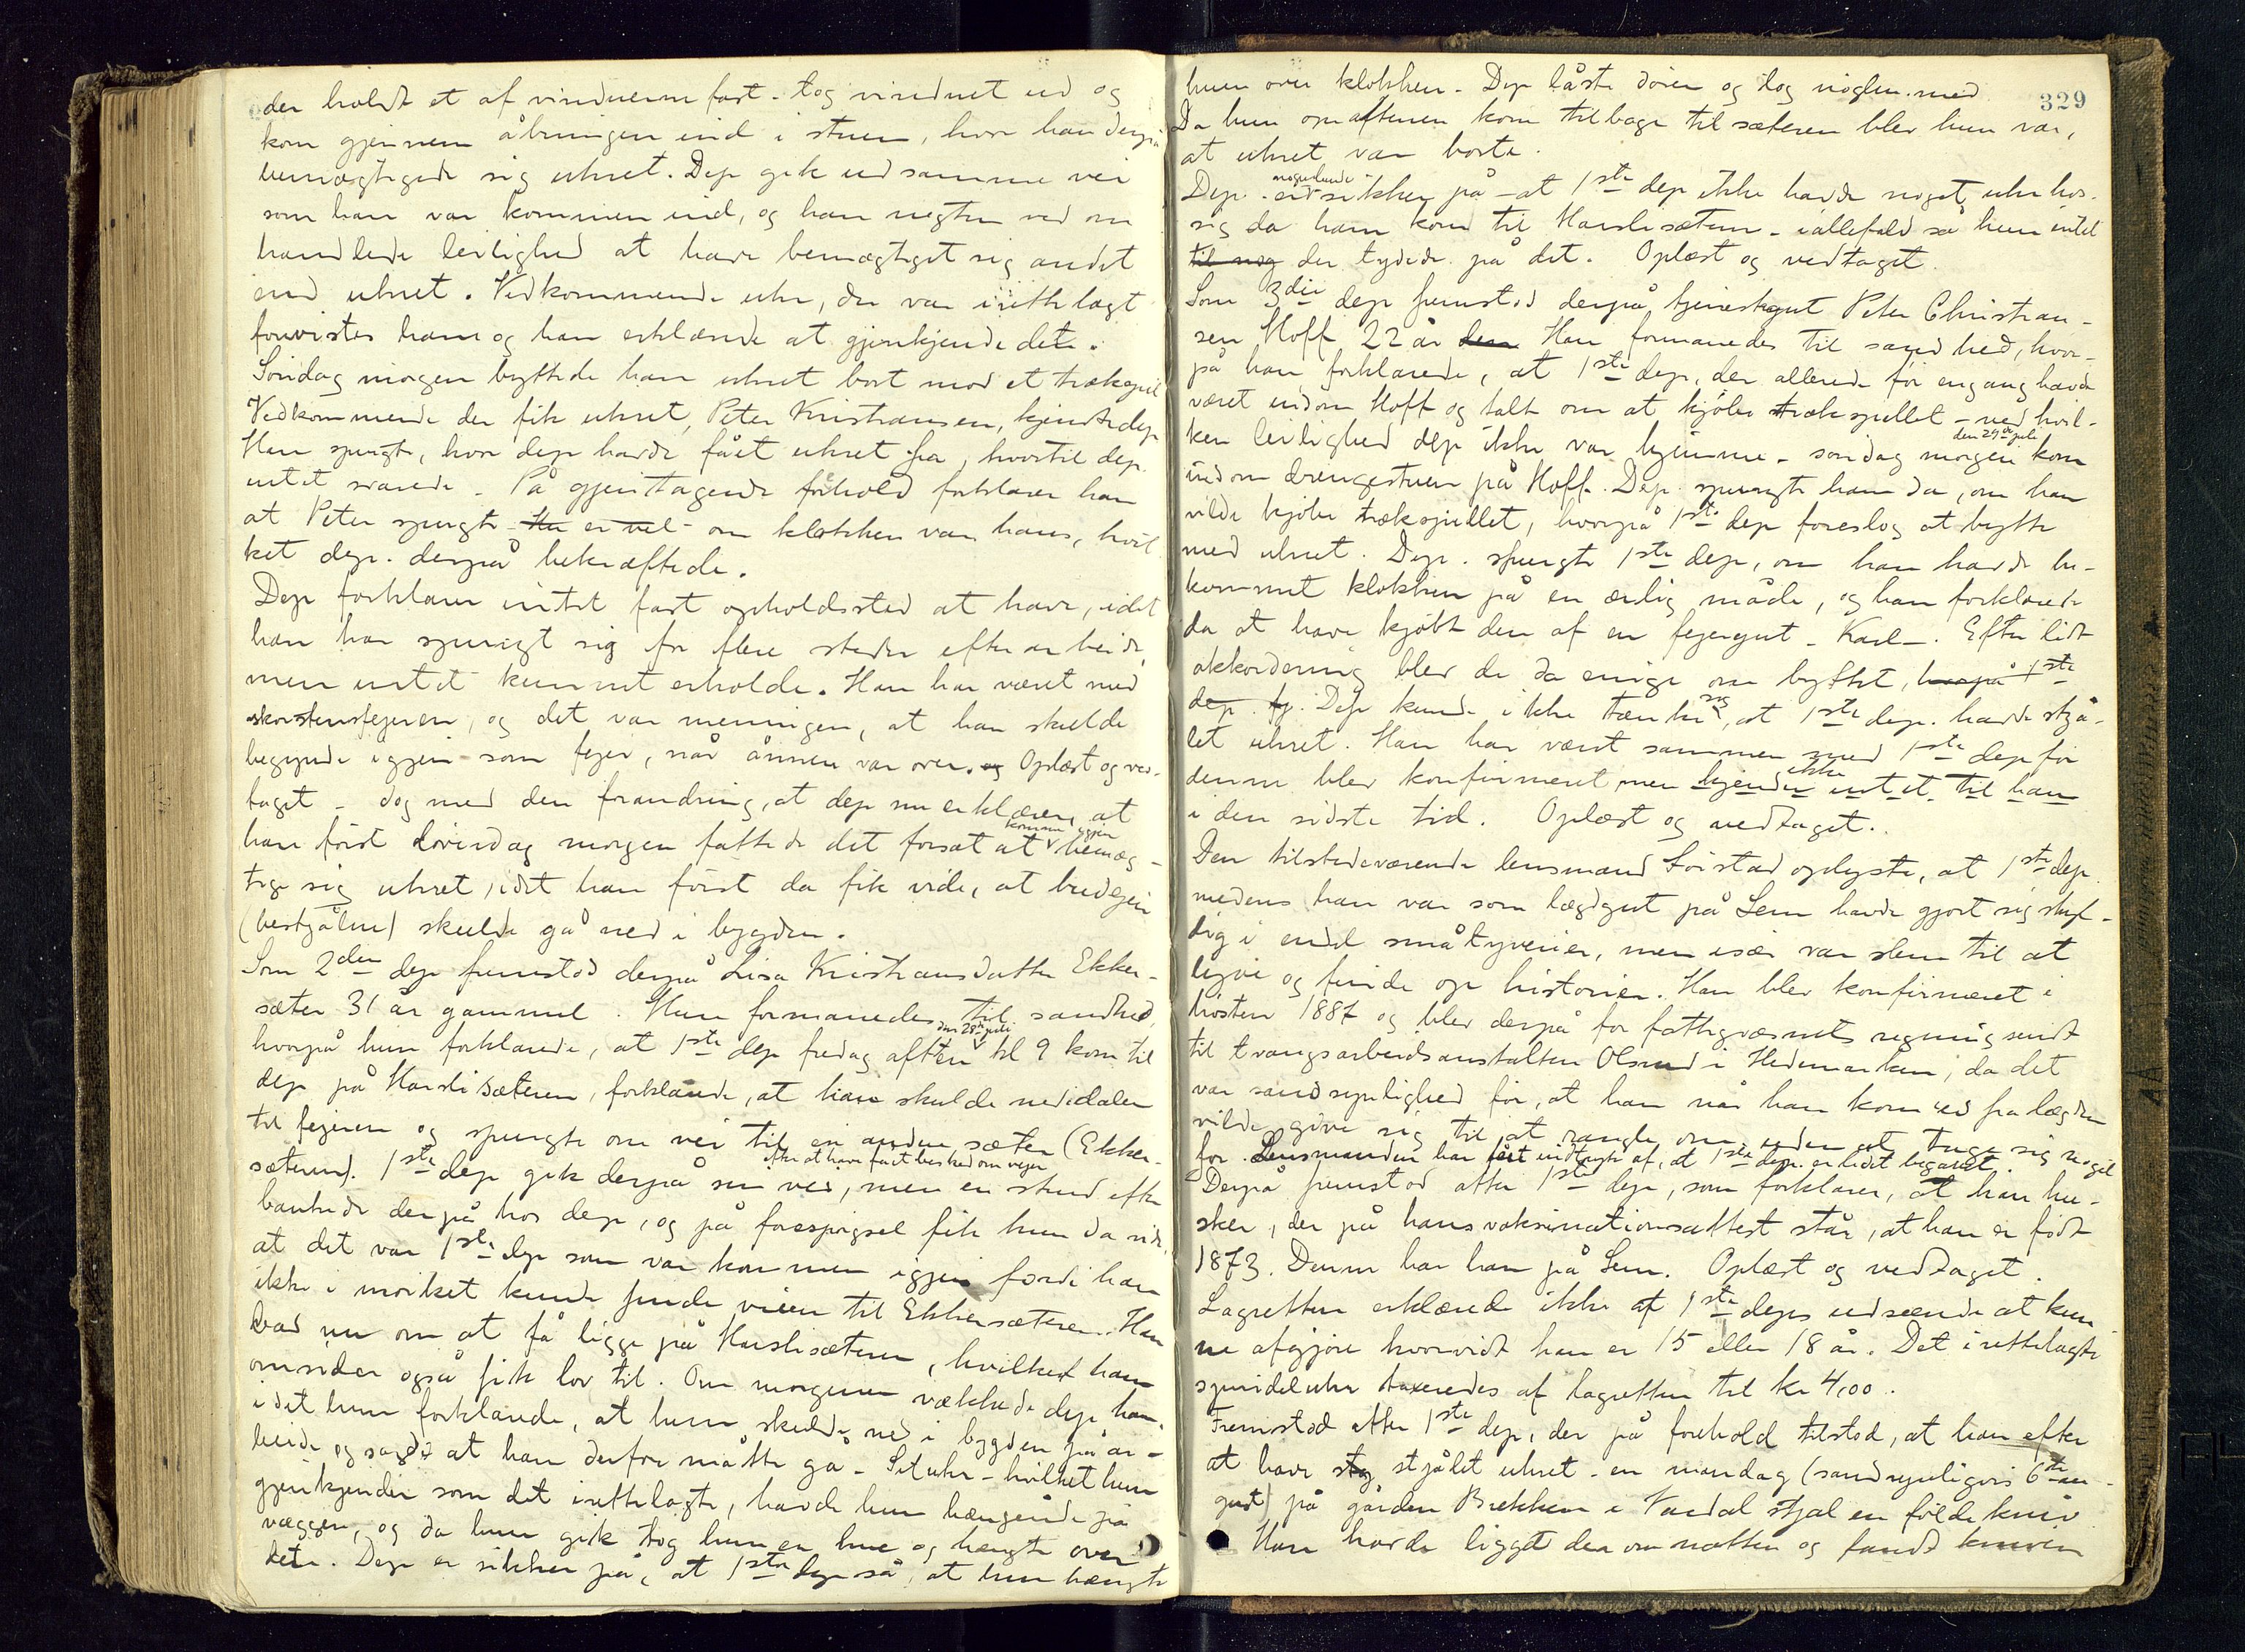 der holdt et af vinduerne fast - tog vinduet ud og
kom gjennem åbningen ind i stuen, hvor han derpå
bemægtigede sig uhret. Dep gik ud samme vei
som han var kommen ind, og han negter ved om
handlede leilighed at have bemægtiget sig andet
end uhret. Vedkommende uhr, der var irettelagt
forevistes ham og han erklærede at gjenkjende det.
Søndag morgen byttede han uhret bort mod et trækspil
Vedkommende der fik uhret, Peter Kristiansen, kjendte dep
Han spurgte, hvor dep havde fået uhret fra, hvortil dep
intet svarede. På gjentagende forhold forklarer han
at Peter spurgte - Du er vel - om klokken var hans, hvil
ket dep. derpå bekræftede.
Dep forklarer intet fast opholdssted at have, idet
han har spurgt sig for flere steder efter arbeide,
men intet kunnet erholde. Han har været med
skorstensfejeren, og det var meningen, at han skulde
begynde igjen som fejer, når ånnen var over. og Oplæst og ved-
taget - dog med den forandring, at dep nu erklærer, at
han først lørdag morgen fattede det forsæt at komme igjen bemæg-
tige sig uhret, idet han først da fik vide, at budejen
(bestjålne) skulde gå ned i bygden.
Som 2den dep fremstod derpå Lisa Kristiansdatter Ekker-
sæter 31 år gammel. Hun formanedes til sandhed,
hvorpå hun forklarede, at 1ste dep fredag aften den 28de juli kl 9 kom til
dep på Harslisæteren, forklarede, at han skulde ned i dalen
til fejeren og spurgte om vei til en anden sæter (Ekker-
sæteren). 1ste dep gik derpå efter at have fåt besked om vejen sin vei, men en stund efter
bankede der på hos dep, og på forespørgsel fik hun da vide,
at det var 1ste dep som var kommen igjen fordi han
ikke i mørket kunde finde veien til Ekkersæteren. Han
bad nu om at få ligge på Harslisæteren, hvilket han
omsider også fik lov til. Om morgenen vækkede dep ham,
idet hun forklarede, at hun skulde ned i bygden på ar-
beide og sagde at han derfor måtte gå. Sit uhr - hvilket hun
gjenkjender som det irettelagte, havde hun hængende på
væggen, og da hun gik tog hun en hue og hængte over
dette. Dep er sikker på, at 1ste dep så, at hun hængte
329
huen over klokken. Dep låste døren og tog nøglen med
Da hun om aftenen kom tilbage til sæteren blev hun var,
at uhret var borte.
Dep. er nogenlunde sikker på - at 1ste dep ikke havde noget uhr hos
sig da han kom til Harslisæteren - iallefald så hun intet
til nog der tydede på det. Oplæst og vedtaget.
Som 3die dep fremstod derpå tjenestegut Peter Christian-
sen Hoff 22 år den Han formanedes til sandhed, hvor-
på han forklarede, at 1ste dep, der allerede før engang havde
været indom Hoff og talt om at kjøbe trækspillet - ved hvil-
ken leilighed dep ikke var hjemme - søndag morgen den 29de juli kom
indom drengestuen på Hoff. Dep. spurgte ham da, om han
vilde kjøbe trækspillet, hvorpå 1ste dep foreslog at bytte
med uhret. Dep. spurgte 1ste dep, om han havde be-
kommet klokken på en ærlig måde, og han forklarede
da at have kjøbt den af en fejergut - Karl -. Efter lidt
akkordering blev de da enige om byttet, hvorpå 1ste
dep. fj. Dep kunde ikke tænke sig, at 1ste dep. havde stjå-
let uhret. Han har været sammen med 1ste dep før
denne blev konfirmeret, men kjender ikke intet til ham
i den sidste tid. Oplæst og vedtaget.
Den tilstedeværende lensmand Løistad oplyste, at 1ste dep.
medens han var som lægdgut på Lem havde gjort sig skyl-
dig i endel småtyverier, men især var slem til at
lyve og finde op historier. Han blev konfirmeret i
høsten 1887 og blev derpå for fattigvæsnets regning sendt
til tvangsarbeidsanstalten Olsrud i Hedemarken, da det
var sandsynlighed for, at han når han kom ud fra lægden
vilde give sig til at rangle om, uden at tage sig noget
for. Lensmanden har fået indtryk af, at 1ste dep. er lidet begavet.
Derpå fremstod atter 1ste dep, som forklarer, at han hu-
sker, der på hans vaksinationsattest står, at han er født
1873. Denne har han på Lem. Oplæst og vedtaget.
Lagretten erklærede ikke af 1ste deps udseende at kun-
ne afgjøre hvorvidt han er 15 eller 18 år. Det irettelagte
spindeluhr taxeredes af lagretten til kr 4,00.
Fremstod atter 1ste dep, der på forehold tilstod, at han efter
at have stj stjålet uhret - en mandag (sandsynligvis 6te au-
gust) på gården Brekken i Vardal stjal en foldekniv
Han havde ligget der om natten og fandt kniven